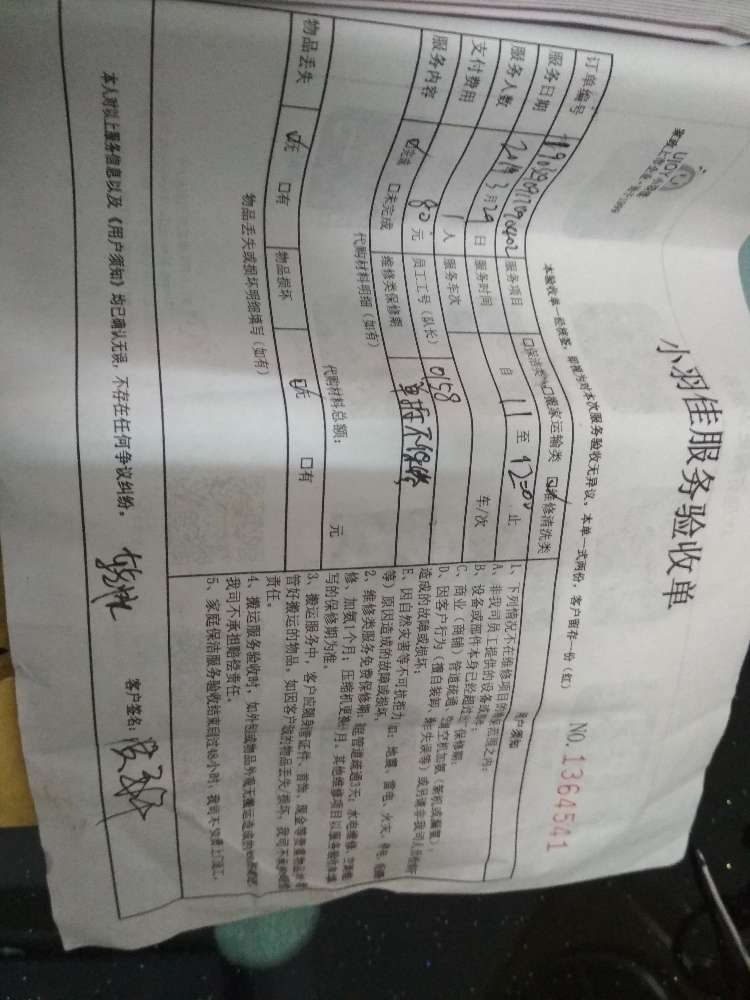 小羽佳服务验收单
NO.1364541
本验收单一经核签，即视为对本次服务验收无异议，本单一式两份，客户留存一份（红）
订单编号
服务项目 口保洁类 口搬家运输类 ☑维修清洗类
服务日期 2019年3月29日 服务时间 自 11 至 12:00 止
服务人数 1人 服务车次 车/次
支付费用 80元 员工工号（队长） 0158
服务内容 ☑完成 口未完成 维修类保修期 单拆不保修
代购材料明细（如有）
代购材料总额： 元
物品丢失 ☑无 口有 物品损坏 ☑无 口有
物品丢失或损坏明细填写（如有）
用户须知
1、下列情况不在维修项目的保修范围之内：
A、非我司员工提供的设备或服务；
B、设备或部件本身已经超过保修期；
C、商业（商铺）管道疏通、空调加氟（等机或漏氟）；
D、因客户行为（擅自装卸、失误等）或另请非我司人员
造成的故障或损坏；
E、因自然灾害等不可抗拒力（如：地震、雷电、火灾、
等）原因造成的故障或损坏。
2、维修类服务免费保修期：管道疏通3天；水电维修、
修、加氟1个月；压缩机更换 月、其他维修项目以服务验收单填
写的保修期为准。
3、搬运服务中，客户应随身携带证件、首饰、现金等贵重物品并
管好搬运的物品，如因客户原因物品丢失/损坏，我司不承担赔偿
责任。
4、搬运服务验收时，如外包或物品外观无搬运造成的
我司不承担赔偿责任。
5、家庭保洁服务验收结束超过48小时，我司不免费上门返工。
本人对以上服务信息以及《用户须知》均已确认无误，不存在任何争议纠纷。
客户签名：